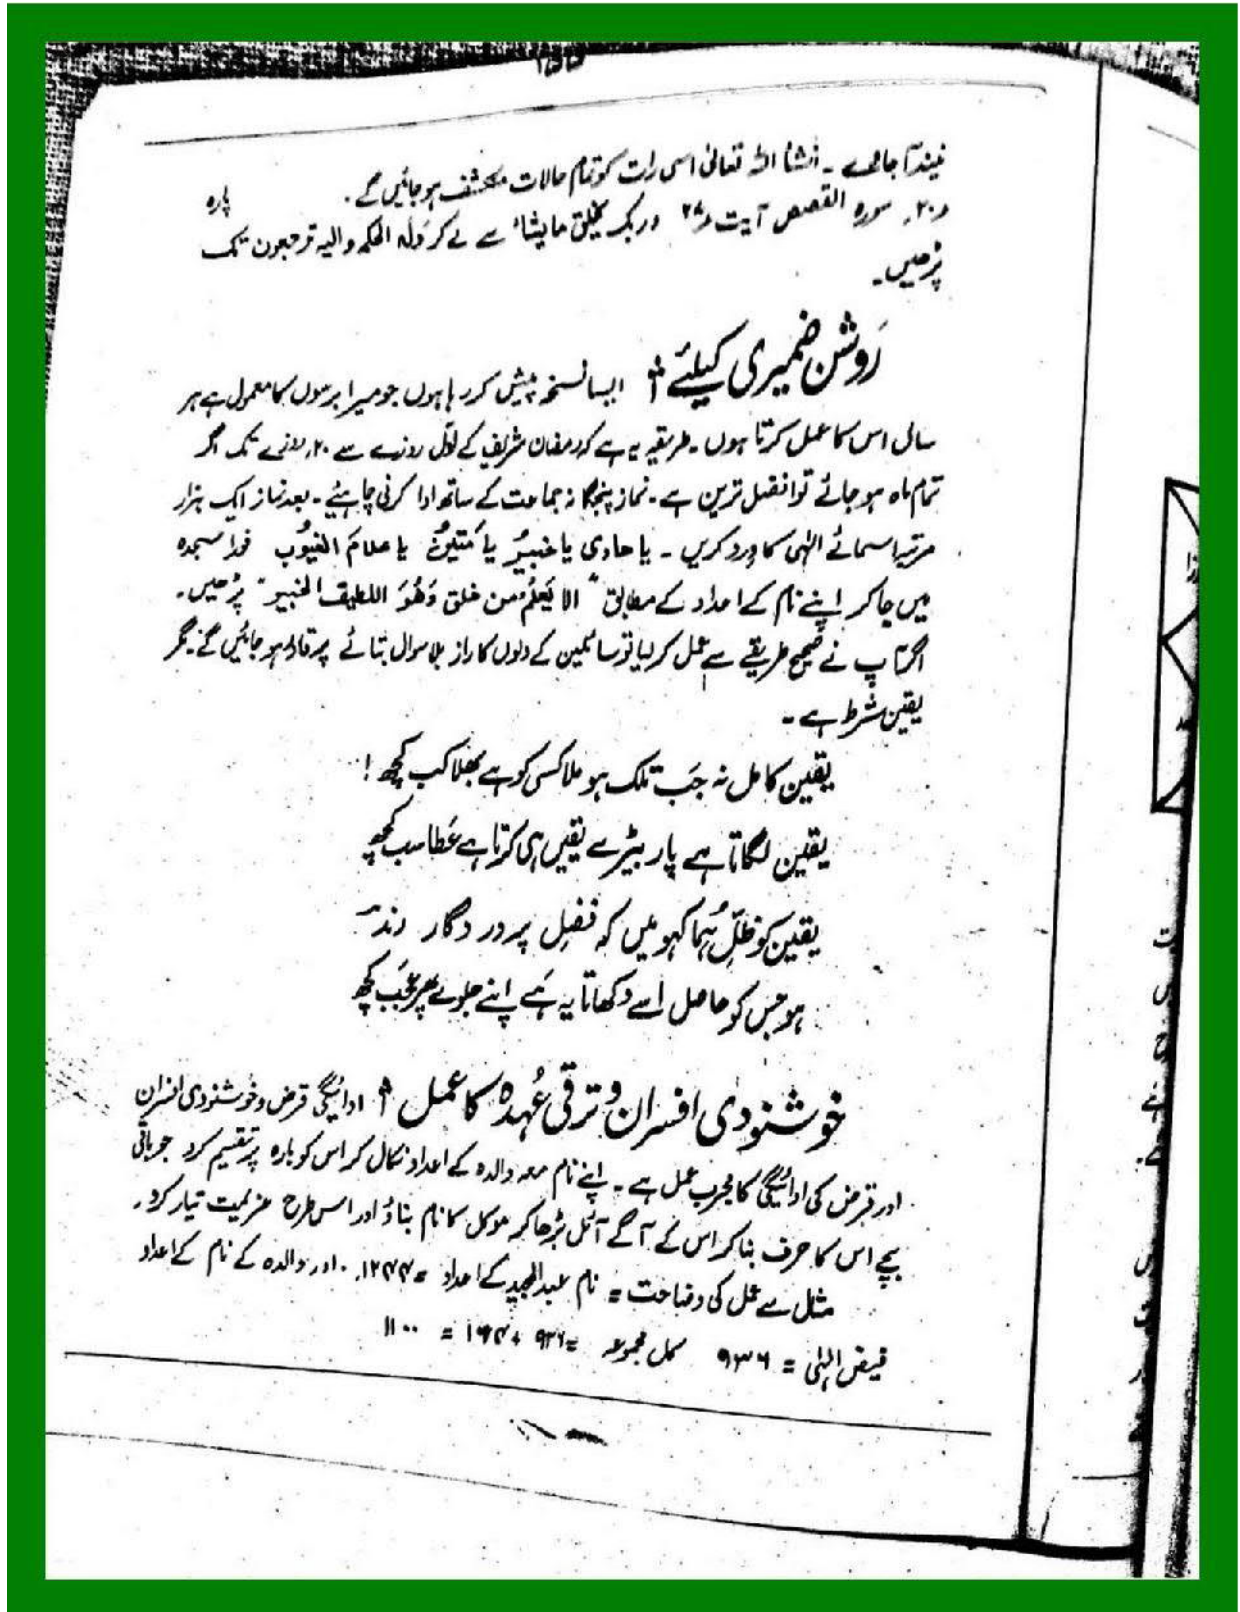 نیند آجائے ۔ انشاء اللہ تعالیٰ اسی رات کو تمام حالات منکشف ہو جائیں گے ۔ پارہ
۲۰، سورہ القصص آیت وربک یخلق مایشاء سے لے کر ولہ الحکم والیہ ترجعون تک
پڑھیں۔
روشن ضمیری کیلئے ایسا نسخہ پیش کر رہا ہوں جو میرا برسوں کا معمول ہے ہر
سال اس کا عمل کرتا ہوں ۔ طریقہ یہ ہے کہ رمضان شریف کے اول روزے سے ۲۰، روزے تک اگر
تمام ماہ ہو جائے تو افضل ترین ہے ۔ نماز پنجگانہ جماعت کے ساتھ ادا کرنی چاہیئے ۔ بعد نماز ایک ہزار
مرتبہ اسمائے الٰہی کا ورد کریں ۔ یا ھادی یا خبیرُ یا مَتِینُ یا علامَ الغیُوب فوراً سجدہ
میں جا کر اپنے نام کے اعداد کے مطابق "الا یَعلَمُ من خلق وَھُوَ اللطیف الخبیر" پڑھیں۔
اگر آپ نے صحیح طریقے سے عمل کر لیا تو سائلین کے دلوں کا راز بلا سوال بتائے پر قادر ہو جائیں گے مگر
یقین شرط ہے ۔
یقین کامل نہ جَب تلک ہو ملا کسی کو ہے بھلا کب کچھ !
یقین لگاتا ہے پار بیڑے یقیں ہی کرتا ہے عَطا سب کچھ
یقین کو ظلِّ ہُما کہو میں کہ فضلِ پروردگار رندؔ
ہو جس کو حاصل اسے دکھاتا یہ ہَے اپنے جلوے پھر عجَب کچھ
خوشنودی افسران و ترقی عُہدہ کا عمل ادائیگی قرض و خوشنودی افسران
اور قرض کی ادائیگی کا مجرب عمل ہے ۔ اپنے نام معہ والدہ کے اعداد نکال کر اس کو بارہ پر تقسیم کرو جو باقی
بچے اس کا حرف بنا کر اس کے آگے آئل بڑھا کر موکل کا نام بناؤ اور اس طرح عزیمت تیار کرو ۔
مثل سے عمل کی وضاحت = نام عبدالمجید کے اعداد = اور والدہ کے نام کے اعداد
فیض الہٰی = ۹۳۶ کل مجموعہ = ۹۳۶ + ۱۶۴ = ۱۱۰۰